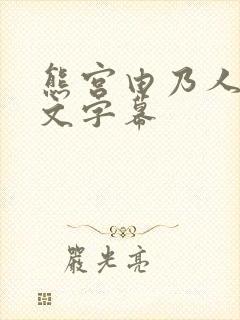 熊宫由乃人
文字幕
嚴光亮